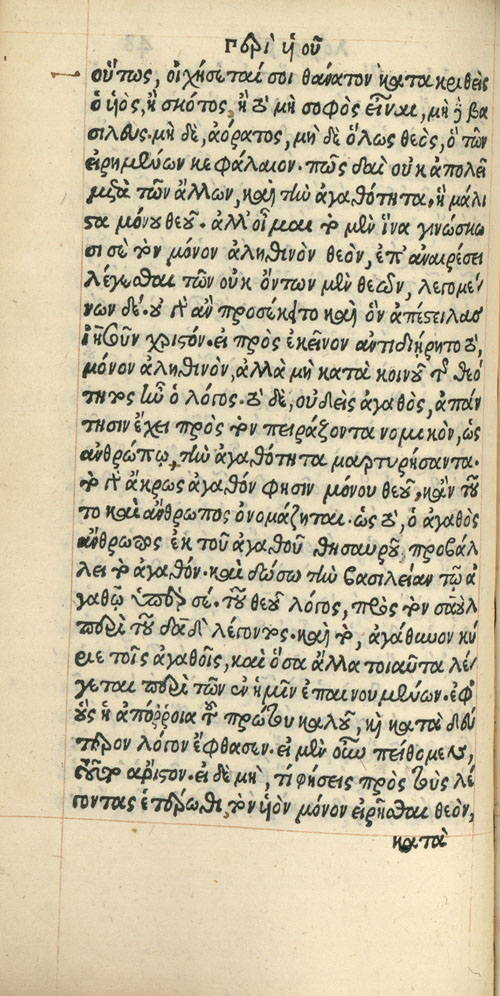 περὶ υἱοῦ
οὕτως, οἰχήσεταί σοι θανάτον κατακριθεὶς
ὁ υἱὸς, ἢ σκότος, ἢ τὸ μὴ σοφὸς εἶναι, μὴ ἢ βα
σιλεύς. μὴ δὲ, ἀόρατος, μὴ δὲ ὅλως θεὸς, ὃ τῶν
εἰρημένων κεφάλαιον. πῶς δαὶ οὐκ ἀπολεῖ
μετὰ τῶν ἄλλων, καὶ τὴν ἀγαθότητα, ἣ μάλι
στα μόνου θεοῦ. ἀλλ' οἶμαι τὸ μὲν ἵνα γινώσκω
σι σὲ τὸν μόνον ἀληθινὸν θεὸν, ἐπ' ἀναιρέσει
λέγεσθαι τῶν οὐκ ὄντων μὲν θεῶν, λεγομέ
νων δέ. οὐ γὰρ ἂν προσέκειτο καὶ ὃν ἀπέστειλας
ἰησοῦν χριστόν. εἰ πρὸς ἐκεῖνον ἀντιδιήρητο τὸ,
μόνον ἀληθινὸν, ἀλλὰ μὴ κατὰ κοινοῦ τῆς θεό
τητος ἦν ὁ λόγος. τὸ δὲ, οὐδεὶς ἀγαθὸς, ἀπάν
τησιν ἔχει πρὸς τὸν πειράζοντα νομικὸν, ὡς
ἀνθρώπῳ, τὴν ἀγαθότητα μαρτυρήσαντα.
τὸ γὰρ ἄκρως ἀγαθόν φησιν μόνου θεοῦ, κἂν τοῦ
το καὶ ἄνθρωπος ὀνομάζηται. ὡς τὸ, ὁ ἀγαθὸς
ἄνθρωπος ἐκ τοῦ ἀγαθοῦ θησαυροῦ, προβάλ
λει τὸ ἀγαθόν. καὶ δώσω τὴν βασιλείαν τῷ ἀ
γαθῷ ὑπὲρ σέ. τοῦ θεοῦ λόγος, πρὸς τὸν σαοὺλ
περὶ τοῦ δαδὶ λέγοντος. καὶ τὸ, ἀγάθυνον κύ
ριε τοῖς ἀγαθοῖς, καὶ ὅσα ἄλλα τοιαῦτα λέ
γεται περὶ τῶν ἐν ἡμῖν ἐπαινουμένων. ἐφ'
οὓς ἡ ἀπόῤῥοια τοῦ πρώτου καλοῦ, καὶ κατὰ δεύ
τερον λόγον ἔφθασεν. εἰ μὲν οὖν πείθομεν,
τοῦτο ἄριστον. εἰ δὲ μὴ, τί φήσεις πρὸς τοὺς λέ
γοντας ἑτέρωθι, τὸν υἱὸν μόνον εἰρῆσθαι θεὸν,
κατὰ